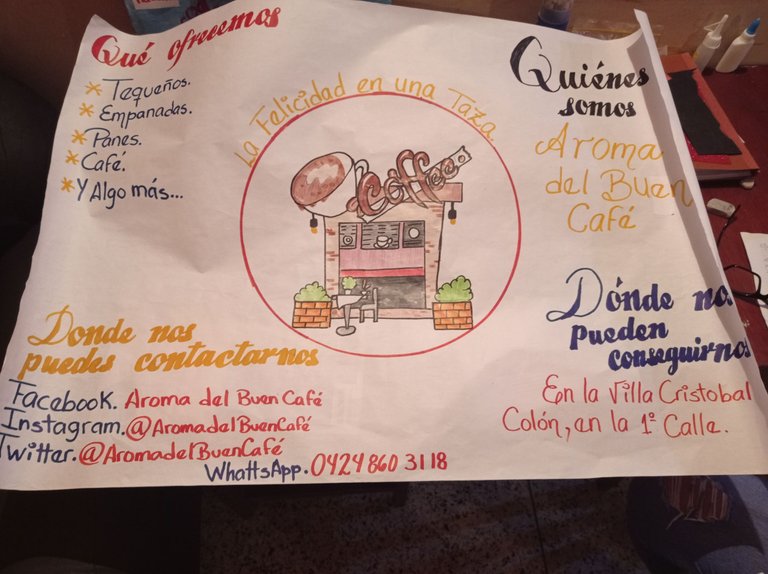 Qué ofrecemos
* Tequeños.
* Empanadas.
* Panes.
* Café.
* Y Algo más...
La Felicidad en una Taza.
Coffee
Quiénes
somos
Aroma
del Buen
Café
Donde nos
puedes contactarnos
Facebook. Aroma del Buen Café
Instagram. @AromadelBuenCafé
Twitter. @AromadelBuenCafé
WhattsApp. 0424 860 3118
Dónde nos
Pueden
conseguirnos
En la Villa Cristobal
Colón, en la 1º Calle.